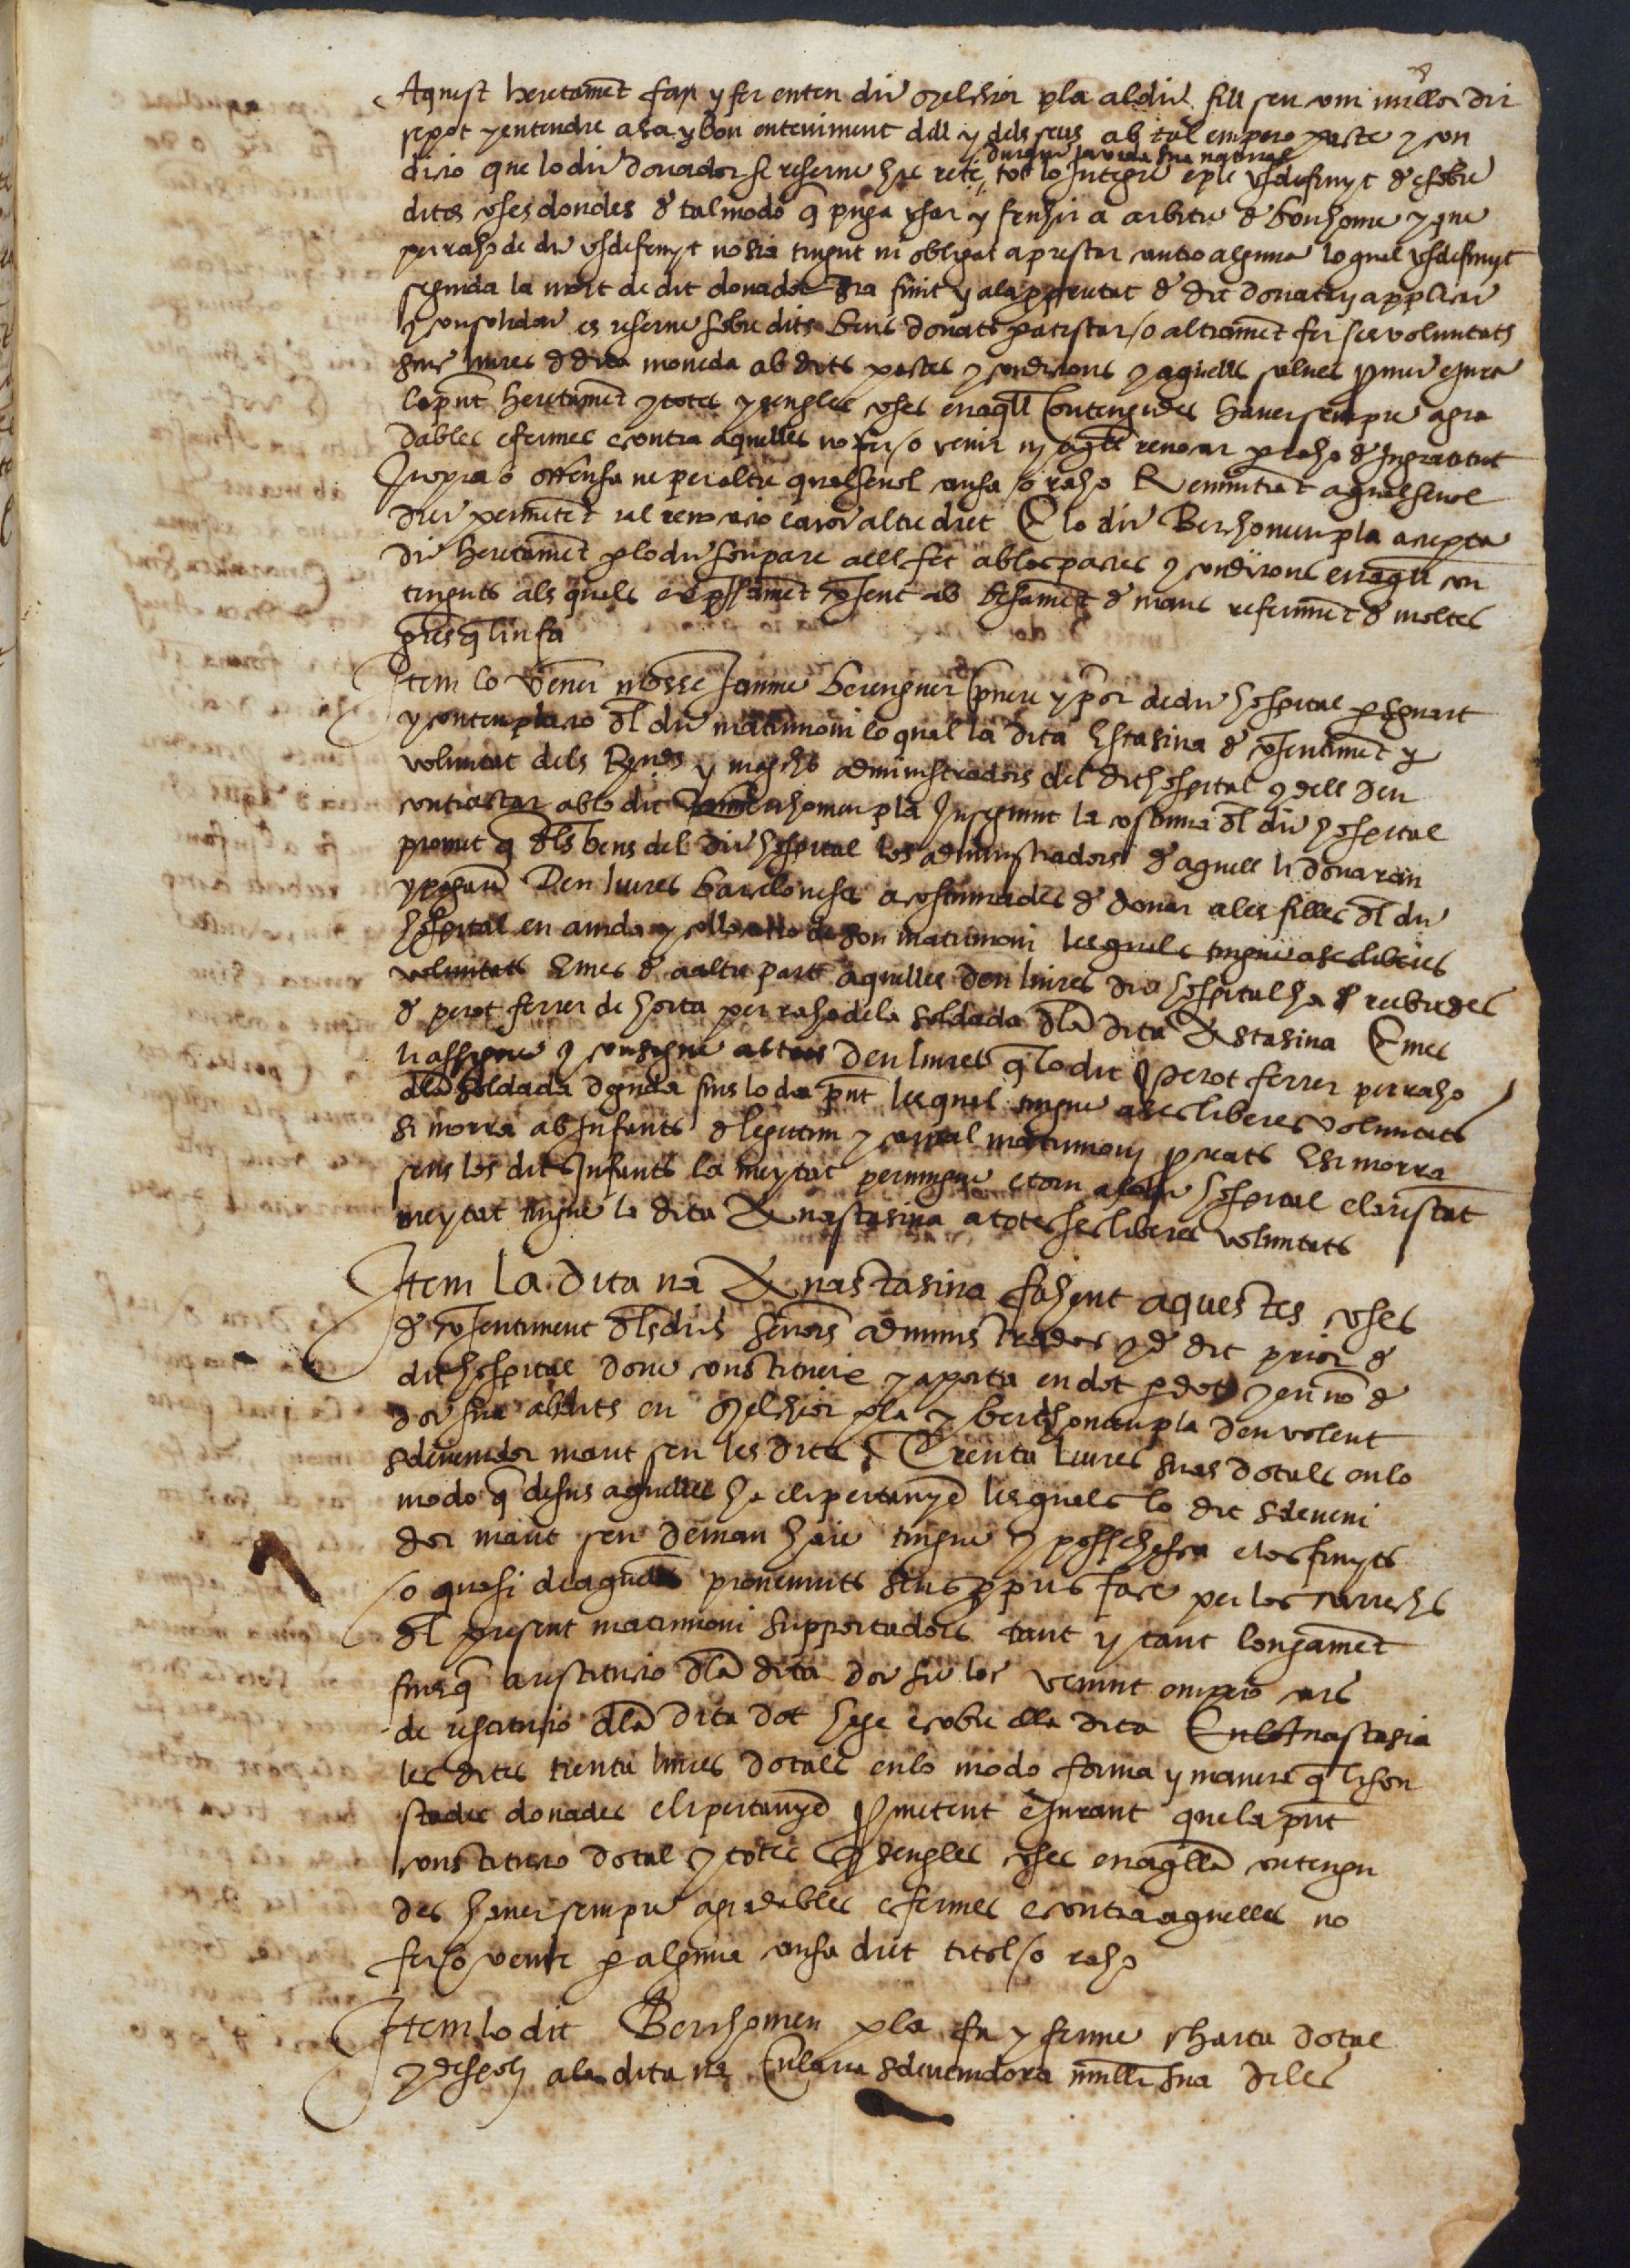 Aquest heretament fan y fer enten dit Melchior pla al dit fill seu com millor dir
se pot y entendre a sa y bon enteniment dell y dels seus ab tal empero pacte y con
durant sa vida sua natural
dicio que lo dit donador se reserve y se rete tot lo integre e ple usdefruyt de sobre
dites coses donades de tal modo q puga usar y fruhir a arbitre de bon home y que
per raho de dit usdefruyt no sia tingut ni obligat a prestar cautio alguna lo qual usdefruyt
seguida la mort de dit donador sia finit y a la pprietat de dit donatari applicar
y consolidar es reserve sobre dits bens donats p a testar /o altrament fer ses voluntats
lliures d dita moneda ab dits pactes y condicions y aquells salves pmet e jura
lo pnt heretament y totes y sengles coses en aqll contengudes haver sempre agra
dables e fermes e contra aquelles no fer /o venir ny aqll revocar p raho de ingratitut
inopia o offensa ne per altre qualsevol causa /o raho Renunciant a qualsevol
dret permetent tal revocacio e a tot altre dret E lo dit Berthomeu pla accepta
dit heretament p lo dit son pare a ell fet ab los pactes y condicions en aqll con
tinguts als quals expressament consent ab besament de mans referiment de moltes
gres q lin fa
Item lo vener mosse Jaume Berenguer pvere y pior de dit hospital p sguart
y contemplacio dl dit matrimoni lo qual la dita Estasina de consentiment y
voluntat dels Rnds y magchs administradors del dit hospital y dell deu
contractar ab lo dit Berthomeu pla Inseguint la costuma dl dit hospital
promet q dls bens del dit hospital los administradors de aquell li donaran
y pagaran Deu liures barceloneses acostumades de donar a les filles dl dit
hospital en aiuda y collocatio de son matrimoni les quals tingue a ses liberes
voluntats E mes de altre part aquelles deu liures dit hospital ha rebudes
de perot ferrer de horta per raho de la soldada dla dita Anastasina E mes
li assigne y consigne altres deu liures q lo dit perot ferrer per raho
dla soldada deguda fins lo dia pnt les quals tingue a ses liberes voluntats
si morra ab Infants de legitim y carnal matrimoni pcreats E si morra
sens los dits Infants la meytat pervingue e torn a dit hospital e la restant
meytat tingue la dita Anastasina a totes ses liberes voluntats
Item la dita na Anastasina fahent aquestes coses
de consentiment dls dits senors administradors y de dit prior de
dit hospital done constitueix y aporta en dot p dot y en no de
dot sua als dits en Melchior pla y berthomeu pla deu volent
sdevenidor marit seu les dites Trenta liures suas dotals en lo
modo q desus aquelles ha e li pertanyen les quals lo dit sdeveni
dor marit seu deman haie tingue y possehesca e los fruyts
/o quasi de aquelles provenints seus ppis face per los carrechs
dl present matrimoni supportadors tant y tant longament
fins q a restitucio dla dita dot sie loc venint empero cas
de restitucio dla dita dot haje e cobre ella dita Anastasia
les dites trenta liures dotals en lo modo forma y manera q li son
stades donades e li pertanyen pmetent e Jurant que la pnt
constitucio dotal y totes y sengles coses en aqlla contengu
des haver sempre agradables e fermes e contra aquelles no
fer /o venir p alguna causa dret titol /o raho
Item lo dit Berthomeu pla fa y ferme charta dotal
y despoli a la dita na Eulalia sdevenidora muller sua de les